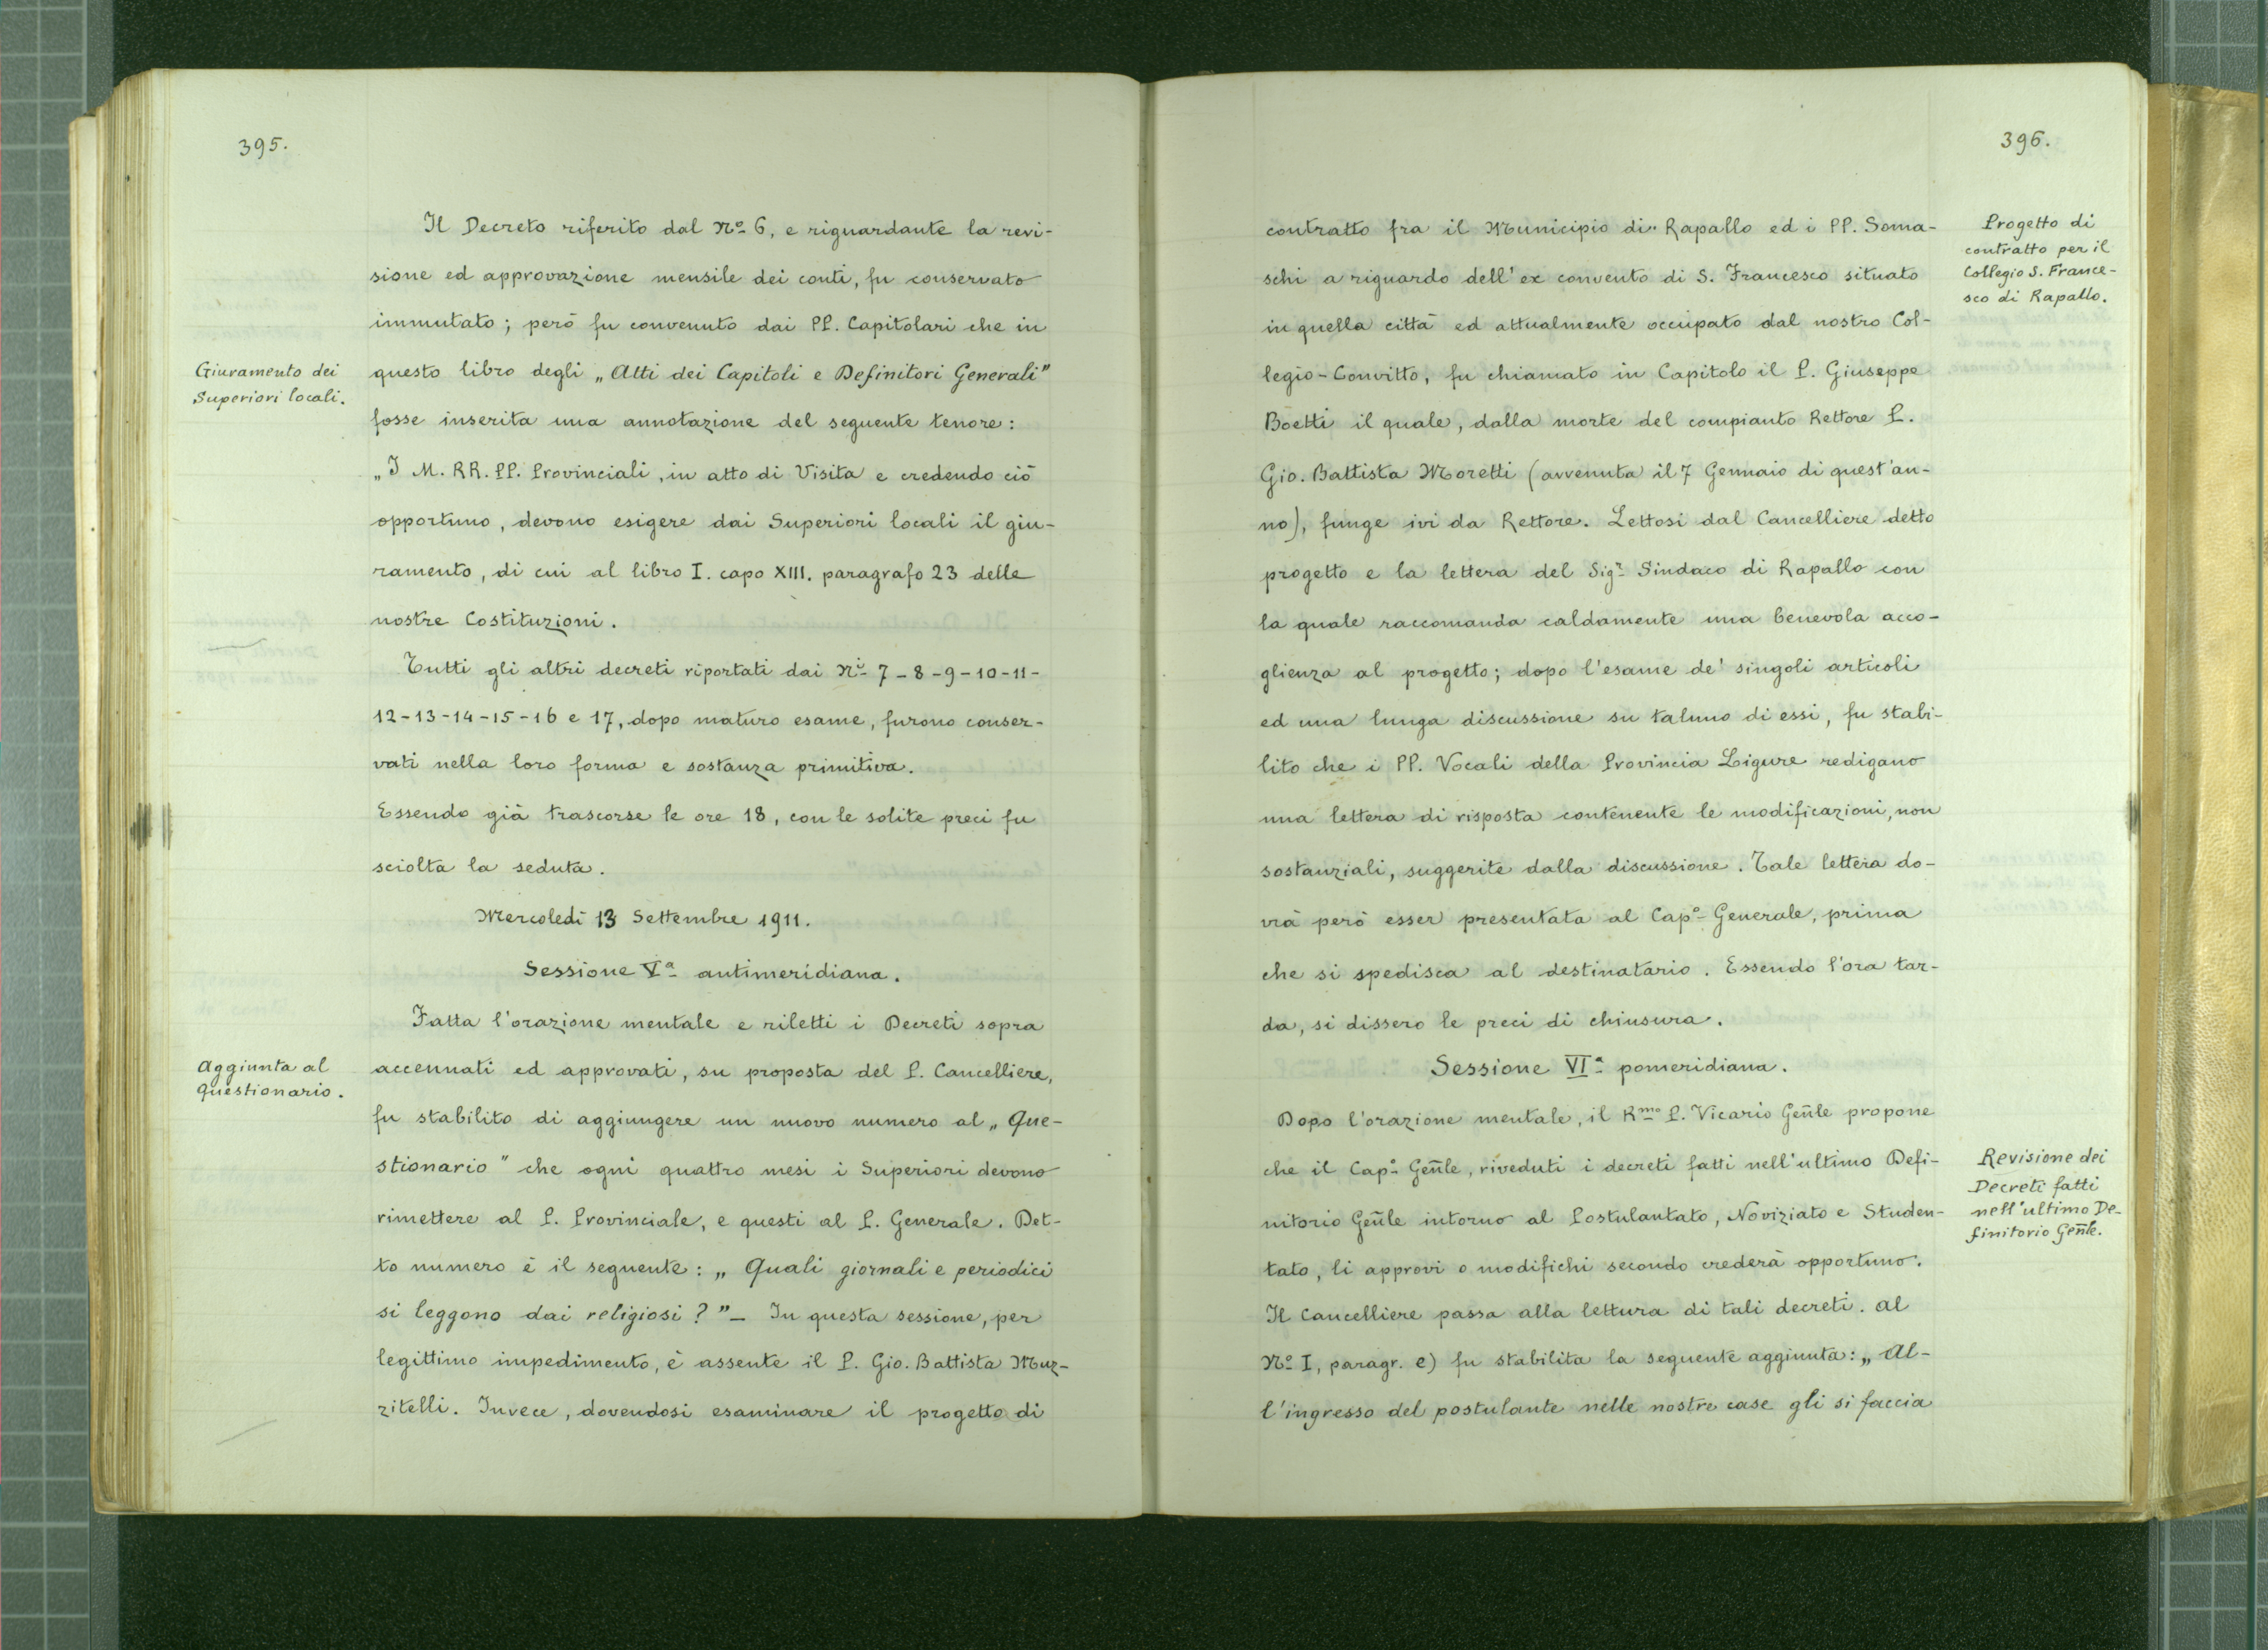 395.
Il Decreto riferito dal Nº 6, e riguardante la revi-
sione ed approvazione mensile dei conti, fu conservato
immutato; però fu convenuto dai PP. Capitolari che in
Giuramento dei
Superiori locali.
questo libro degli „Atti dei Capitoli e Definitori Generali"
fosse inserita una annotazione del seguente tenore:
„I M. RR. PP. Provinciali, in atto di Visita e credendo ciò
opportuno, devono esigere dai Superiori locali il giu-
ramento, di cui al libro I. capo XIII. paragrafo 23 delle
nostre Costituzioni.
Tutti gli altri decreti riportati dai Nⁱ 7-8-9-10-11-
12-13-14-15-16 e 17, dopo maturo esame, furono conser-
vati nella loro forma e sostanza primitiva.
Essendo già trascorse le ore 18, con le solite preci fu
sciolta la seduta.
Mercoledì 13 Settembre 1911.
Sessione Vª antimeridiana.
Fatta l'orazione mentale e riletti i Decreti sopra
Aggiunta al
Questionario.
accennati ed approvati, su proposta del P. Cancelliere,
fu stabilito di aggiungere un nuovo numero al „Que-
stionario" che ogni quattro mesi i Superiori devono
rimettere al P. Provinciale, e questi al P. Generale. Det-
to numero è il seguente: „Quali giornali e periodici
si leggono dai religiosi?"_ In questa sessione, per
legittimo impedimento, è assente il P. Gio. Battista Muz-
zitelli. Invece, dovendosi esaminare il progetto di
396.
Progetto di
contratto per il
Collegio S. France-
sco di Rapallo.
contratto fra il Municipio di Rapallo ed i PP. Soma-
schi a riguardo dell'ex convento di S. Francesco situato
in quella città ed attualmente occupato dal nostro Col-
legio-Convitto, fu chiamato in Capitolo il P. Giuseppe
Boetti il quale, dalla morte del compianto Rettore P.
Gio. Battista Moretti (avvenuta il 7 Gennaio di quest'an-
no), funge ivi da Rettore. Lettosi dal Cancelliere detto
progetto e la lettera del Sigʳ Sindaco di Rapallo con
la quale raccomanda caldamente una benevola acco-
glienza al progetto; dopo l'esame de' singoli articoli
ed una lunga discussione su taluno di essi, fu stabi-
lito che i PP. Vocali della Provincia Ligure redigano
una lettera di risposta contenente le modificazioni, non
sostanziali, suggerite dalla discussione. Tale lettera do-
vrà però esser presentata al Capº Generale, prima
che si spedisca al destinatario. Essendo l'ora tar-
da, si dissero le preci di chiusura.
Sessione VIª pomeridiana.
Dopo l'orazione mentale, il Rᵐᵒ P. Vicario Gen̄le propone
Revisione dei
Decreti fatti
nell'ultimo De-
finitorio Gen̄le.
che il Capº Gen̄le, riveduti i decreti fatti nell'ultimo Defi-
nitorio Gen̄le intorno al Postulantato, Noviziato e Studen-
tato, li approvi o modifichi secondo crederà opportuno.
Il Cancelliere passa alla lettura di tali decreti. Al
Nº I, paragr. e) fu stabilita la seguente aggiunta: „Al-
l'ingresso del postulante nelle nostre case gli si faccia